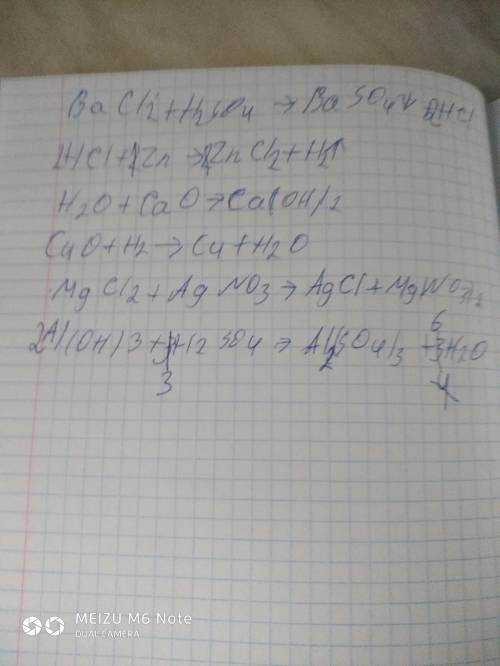 BaCl2 + H2SO4 → BaSO4↓ 2HCl
2HCl + Zn → ZnCl2 + H2↑
H2O + CaO → Ca(OH)2
CuO + H2 → Cu + H2O
MgCl2 + AgNO3 → AgCl + MgNO3)2
2Al(OH)3 + 3H2SO4 → Al2(SO4)3 + 6H2O
MEIZU M6 Note
DUAL CAMERA